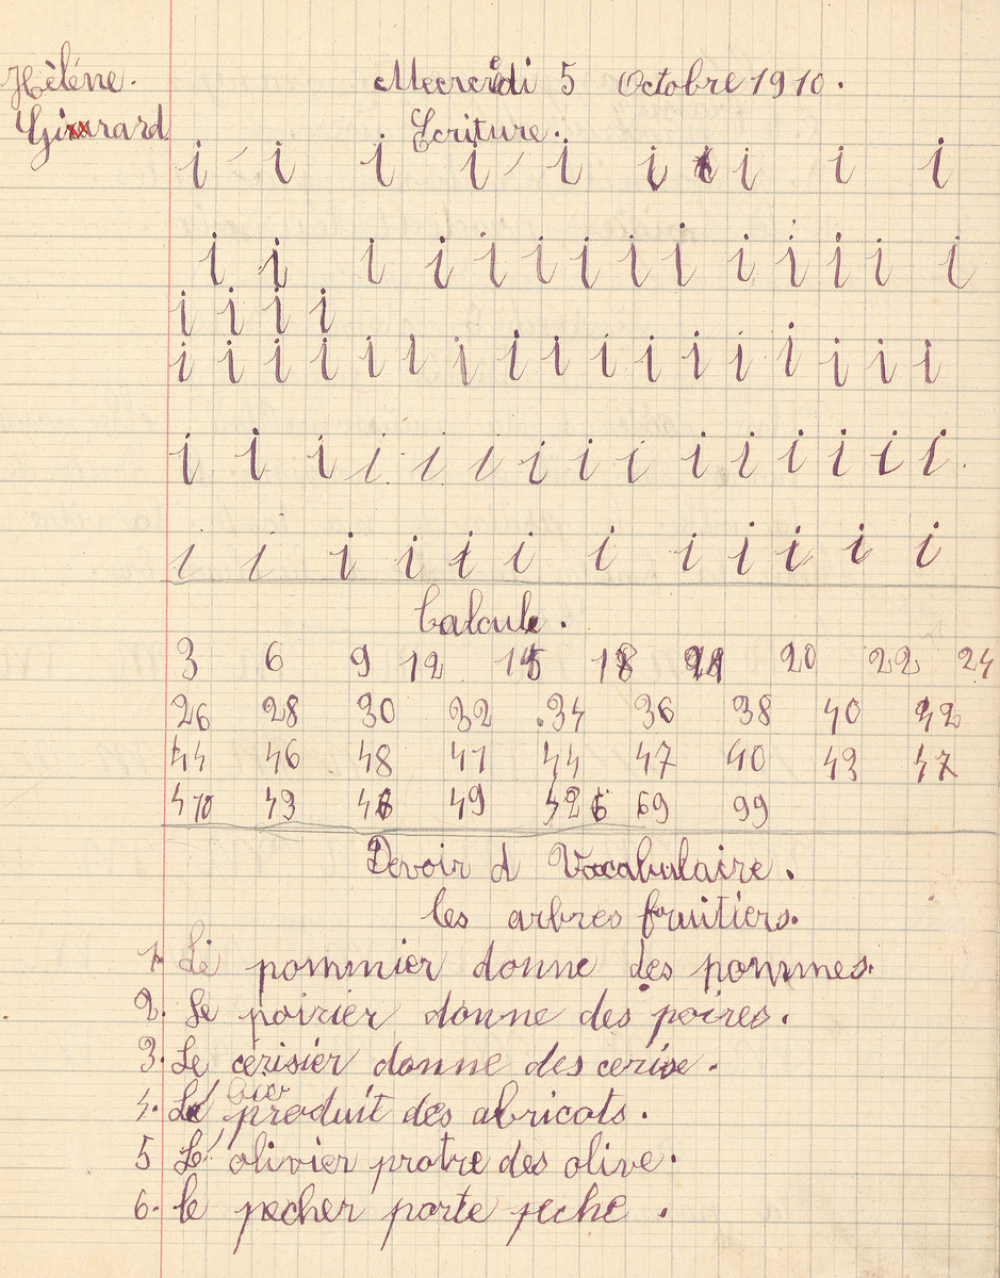 Hèléne.
Girrard
Mecredi 5 Octobre 1910.
Ecriture.
i i i i i i i i i i
i i i i i i i i i i i i i i
i i i i
i i i i i i i i i i i i i i i i i
i i i i i i i i i i i i i i i
i i i i i i i i i i i i
Calcule.
3 6 9 12 15 18 21 20 22 24
26 28 30 32 34 36 38 40 42
44 46 48 41 44 47 40 43 47
470 43 46 49 426 69 99
Devoir d Vocabulaire.
les arbres fruitiers.
1. Le pommier donne des pommes.
2. Le poirier donne des poires.
3. Le cérisier donne des cerise.
4. L' produit des abricots.
5 L' olivier protre des olive.
6. le pecher porte peche.